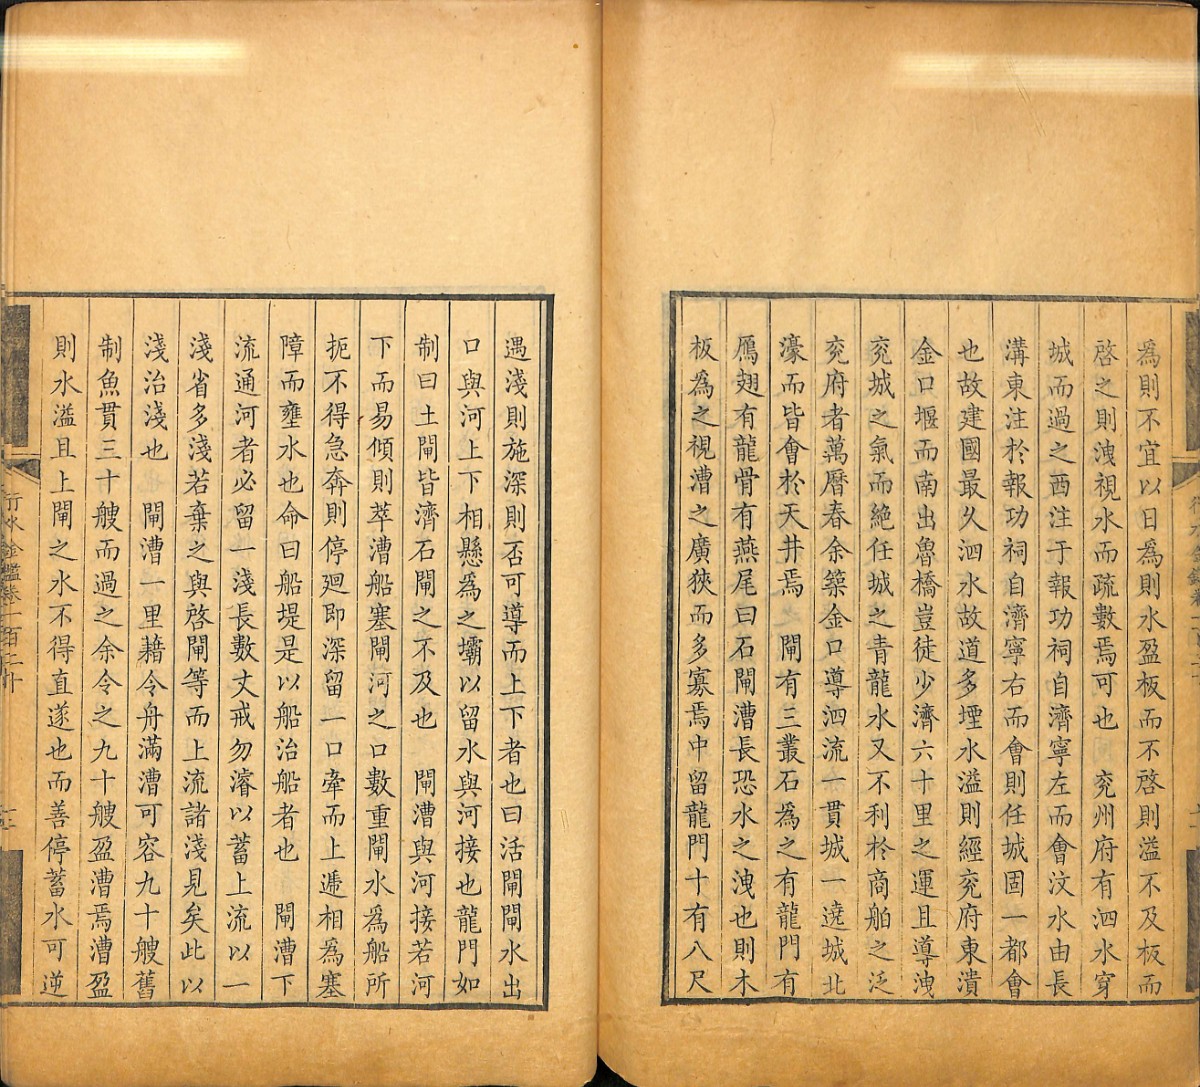 為則不宜以日為則水盈板而不啓則溢不及板而
啓之則洩視水而疏數焉可也　兖州府有泗水穿
城而過之西注于報功祠自濟寧左而會汶水由長
溝東注於報功祠自濟寧右而會則任城固一都會
也故建國最久泗水故道多堙水溢則經兖府東潰
金口堰而南出魯橋豈徒少濟六十里之運且導洩
兖城之氣而絶任城之青龍水又不利於商舶之泛
兖府者萬曆春余築金口導泗流一貫城一遶城北
濠而皆會於天井焉　閘有三叢石為之有龍門有
鴈翅有龍骨有燕尾曰石閘漕長恐水之洩也則木
板為之視漕之廣狹而多寡焉中留龍門十有八尺
遇淺則施深則否可導而上下者也曰活閘閘水出
口與河上下相懸為之壩以留水與河接也龍門如
制曰土閘皆濟石閘之不及也　閘漕與河接若河
下而易傾則萃漕船塞閘河之口數重閘水為船所
扼不得急奔則停廻即深留一口牽而上遞相為塞
障而壅水也命曰船堤是以船治船者也　閘漕下
流通河者必留一淺長數丈戒勿濬以蓄上流以一
淺省多淺若棄之與啓閘等而上流諸淺見矣此以
淺治淺也　閘漕一里藉令舟滿漕可容九十艘舊
制魚貫三十艘而過之余令之九十艘盈漕焉漕盈
則水溢且上閘之水不得直遂也而善停蓄水可逆
行水金鑑卷一百二十